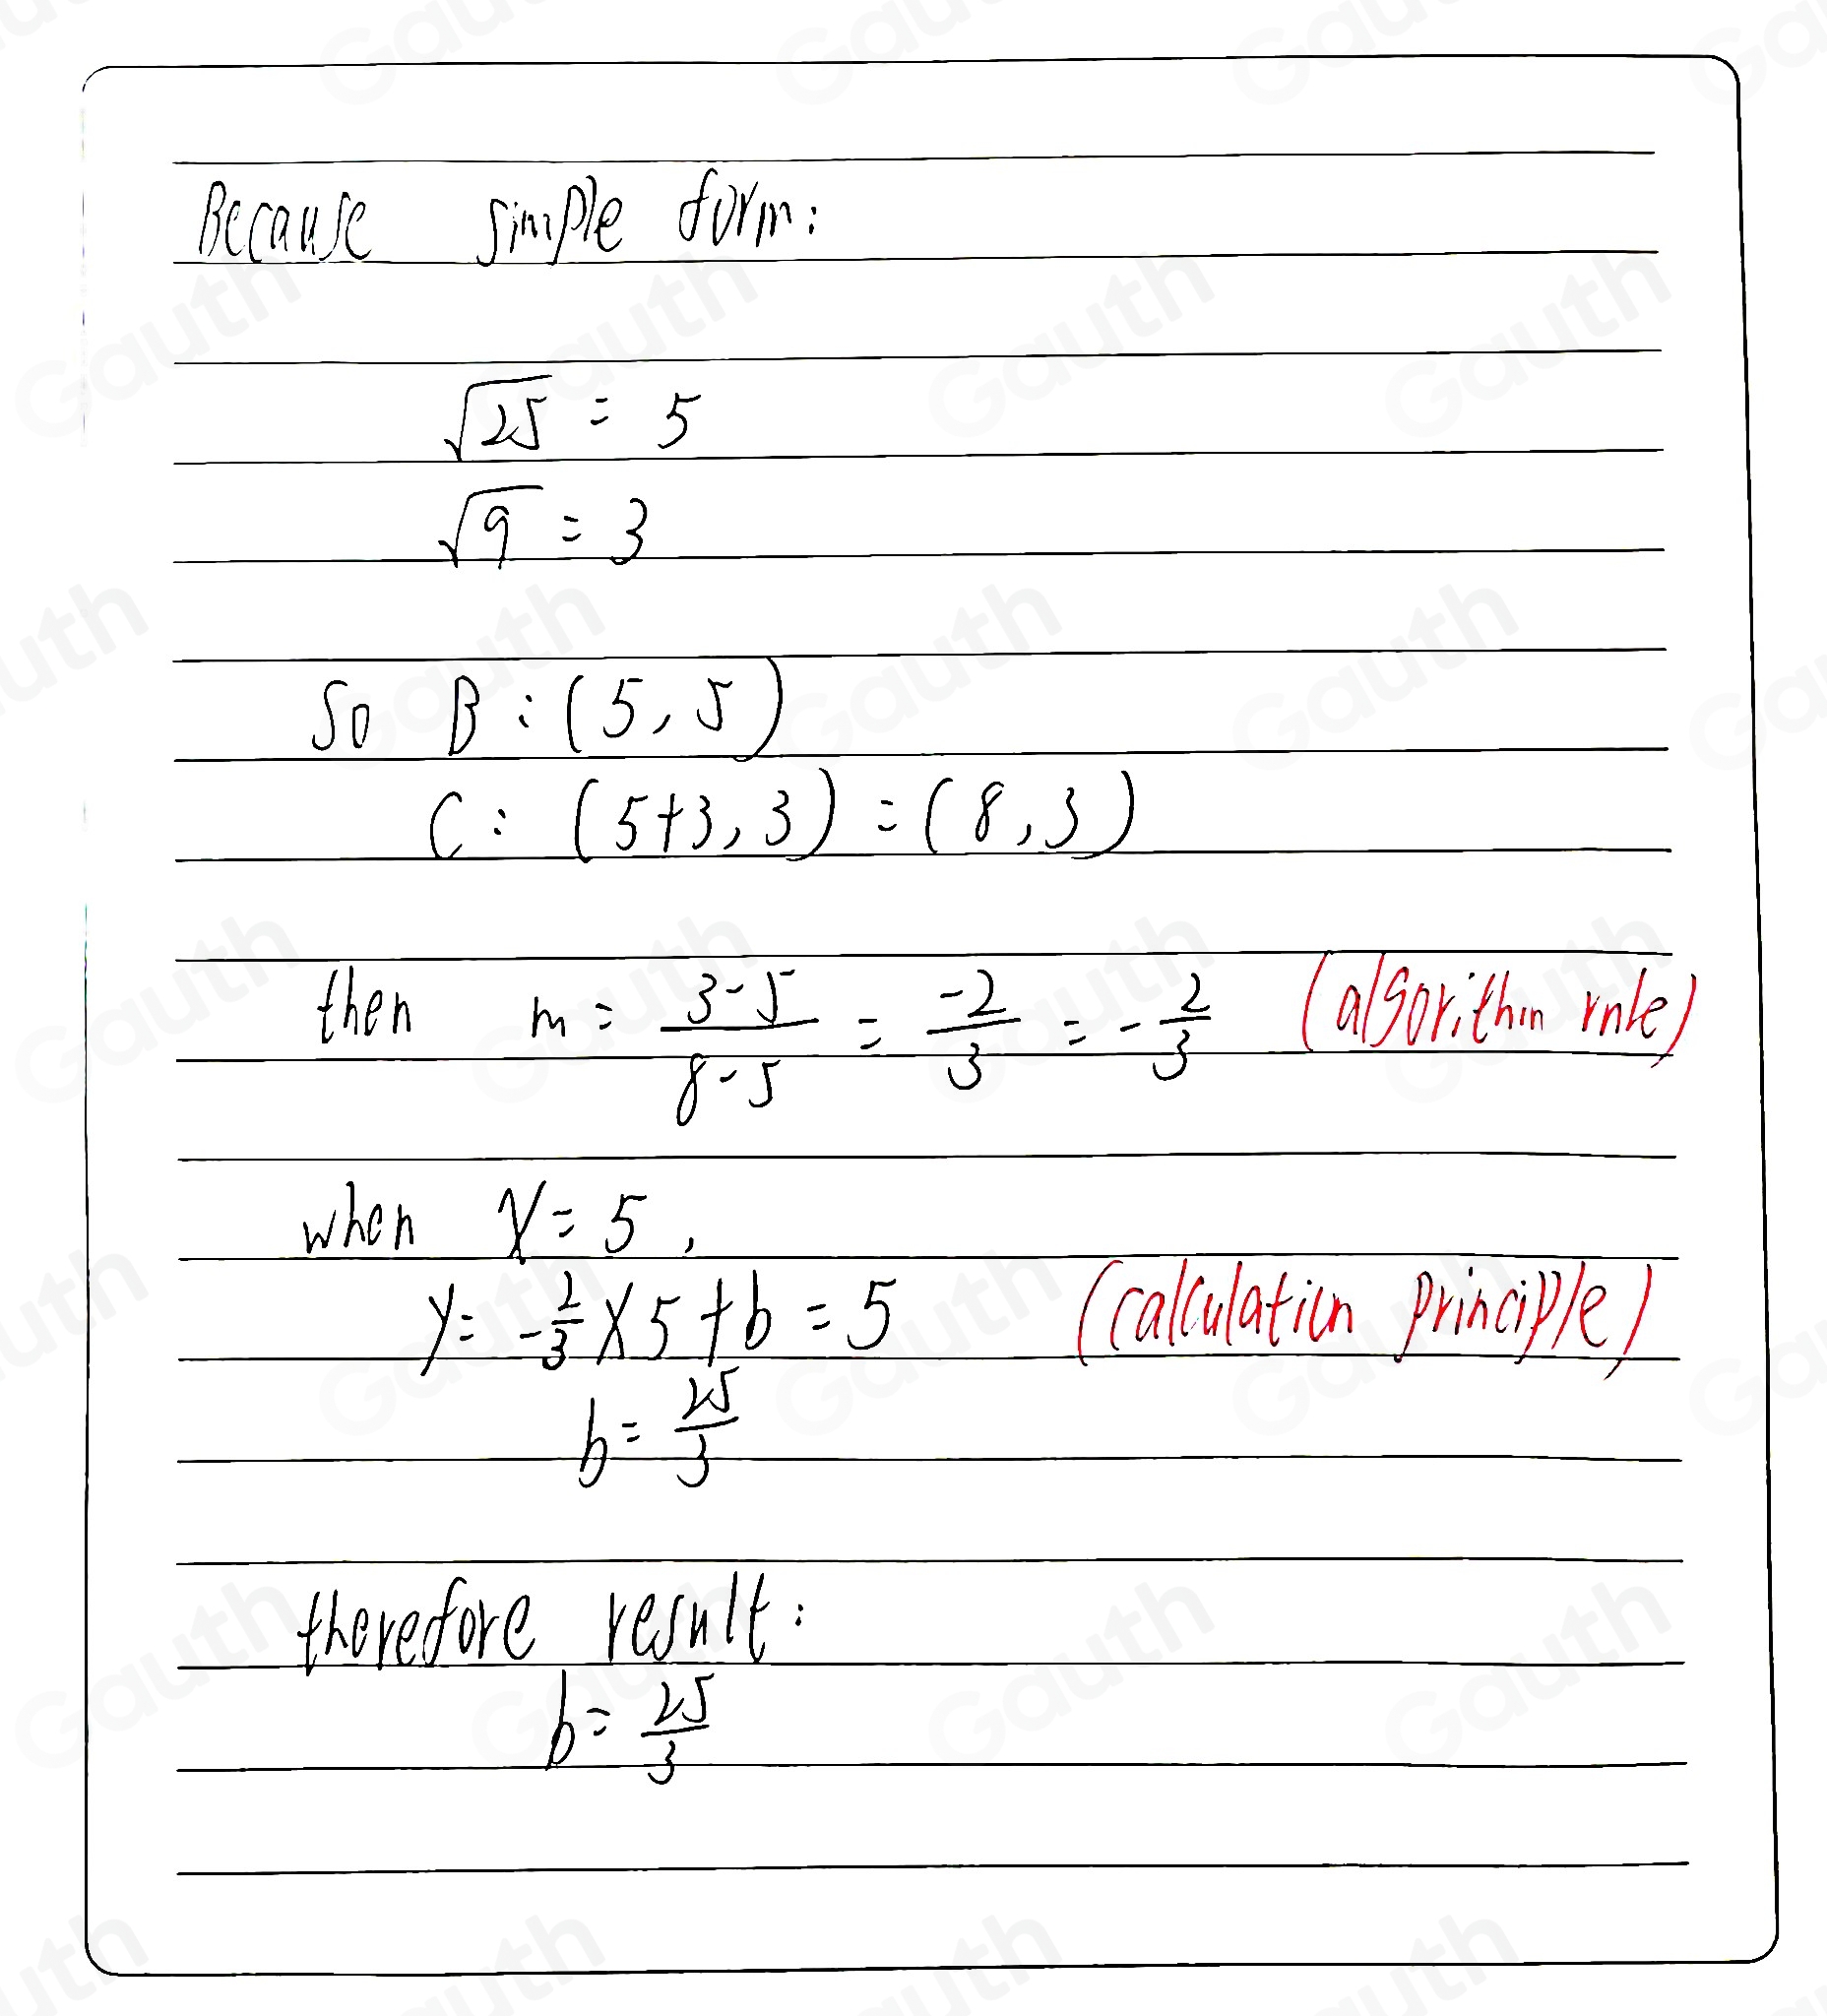 Because simple form:
√25 = 5
√9 = 3
So B: (5, 5)
C: (5+3, 3) = (8, 3)
then m = \frac{3-5}{8-5} = \frac{-2}{3} = -\frac{2}{3} (algorithm rule)
when x = 5,
y = -\frac{2}{3} × 5 + b = 5 (calculation principle)
b = \frac{25}{3}
therefore result:
b = \frac{25}{3}
Gauth